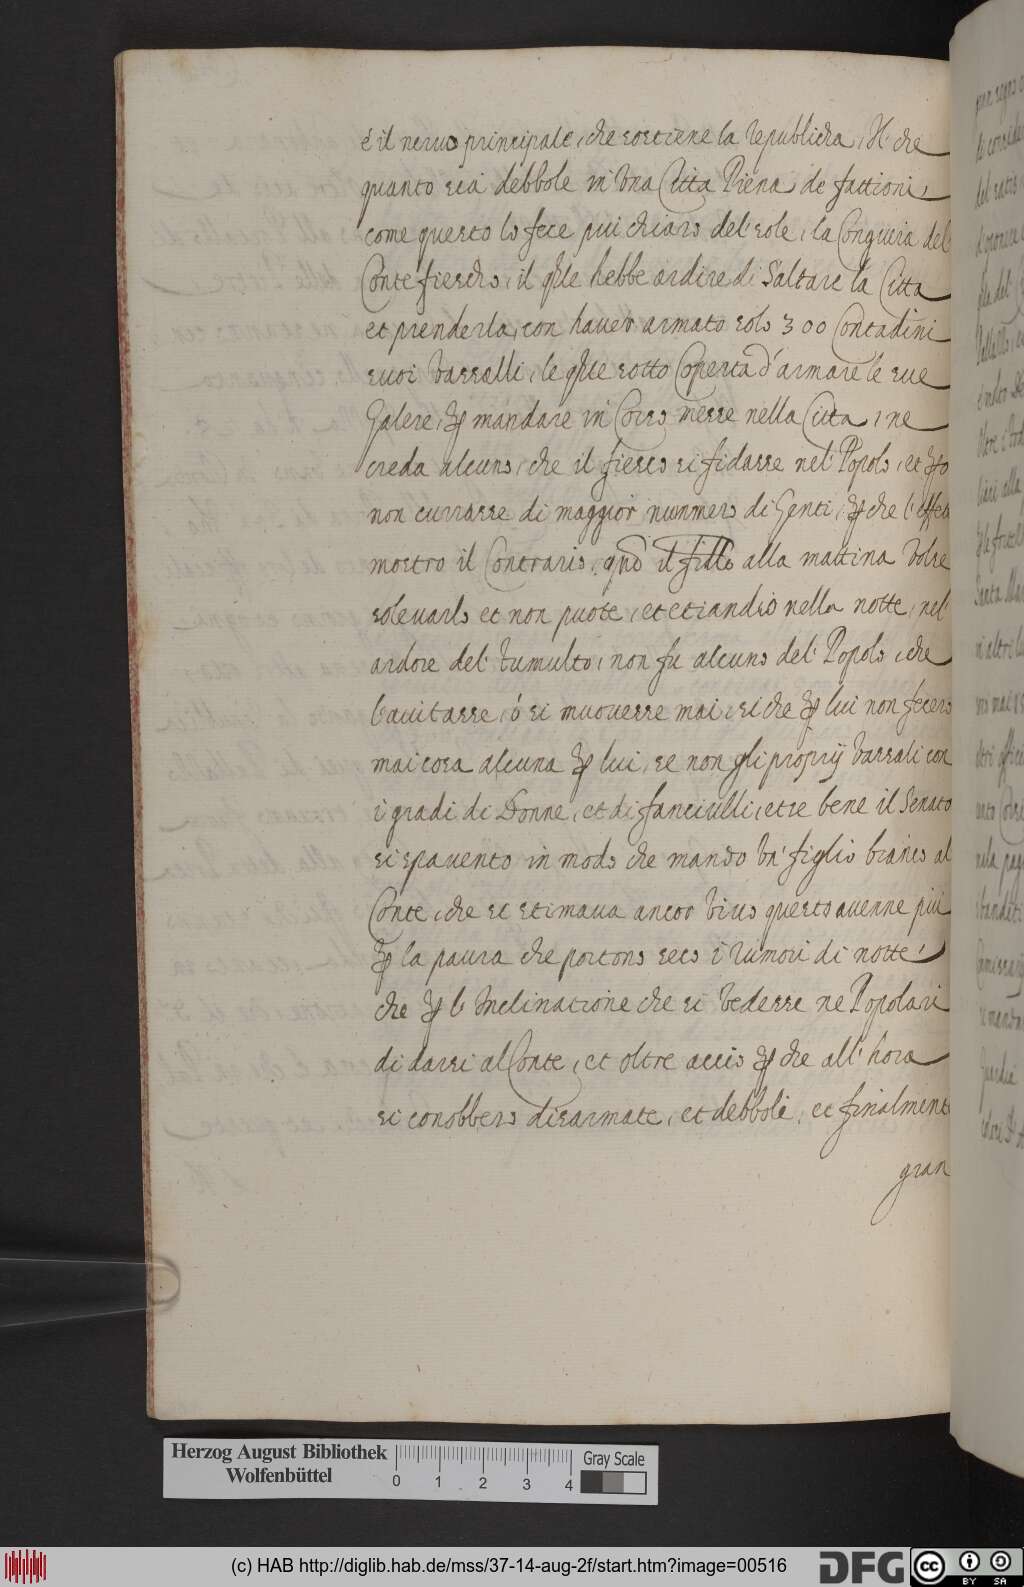 é il neruo principale, che sostiene la republicha, Il che
quanto sia debbole in una Citta Piena de fattioni,
come questo lo fece piu chiaro del sole, la Congiura del
Conte fiescho, il qle hebbe ardire di Saltare la Citta
et prenderla, con hauer armato solo 300 Contadini
suoi vassalli, le qle sotto Coperta d'armare le sue
Galere, et mandare in Corso messe nella Citta, ne
creda alcuno, che il fiesco si fidasse nel Popolo, et pò
non curasse di maggior nummero di Genti, perche l'effetto
mostro il Contrario, qñdo il alla mattina volse
soleuarlo et non puote, et etiandio nella notte, nel
ardore del tumulto, non fu alcuno del Popolo, che
l'auitasse, ó si mouesse mai, si che p lui non fecero
mai cosa alcuna p lui, se non gli proprij vassali con
i gradi di Donne, et di fanciulli, et se bene il Senato
si spauento in modo che mando un figlio biancо al
Conte, che se stimaua ancor viuo questo auenne piu
p la paura che portono seco i rumori di notte,
che p l'Inclinatione che si vedesse ne Popolari
di darsi al Conte, et oltre accio p che all' hora
si conobbero disarmate, et debboli, et finalmente
gran
Herzog August Bibliothek
Wolfenbüttel
0 1 2 3 4
Gray Scale
(c) HAB http://diglib.hab.de/mss/37-14-aug-2f/start.htm?image=00516
DFG
cc BY SA